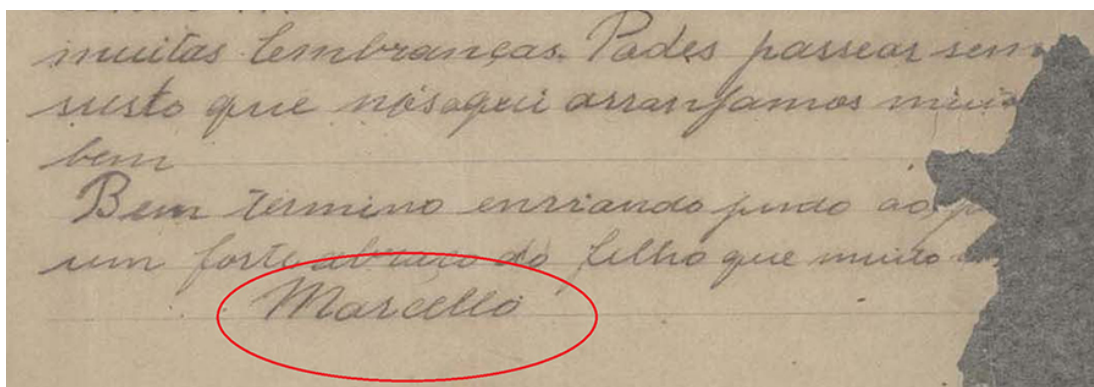 muitas lembranças. Podes passear sem
susto que nós aqui arranjamos
bem
Bem termino enviando junto ao
um forte abraço do filho que muito
Marcello